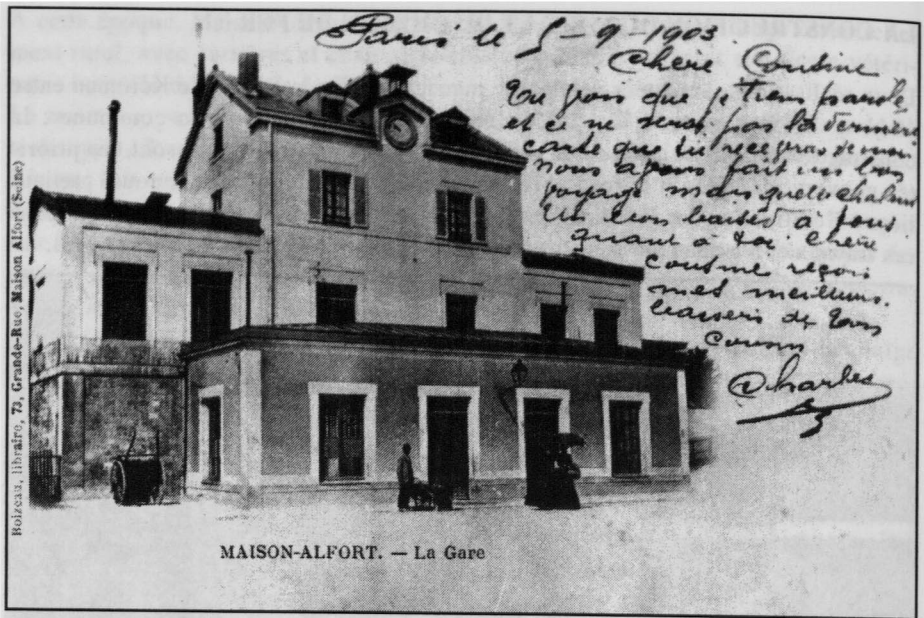 Paris le 5-9-1903
Chère Cousine
Tu vois que je tiens parole
et ce ne sera pas la dernière
carte que tu recevras de moi
nous avons fait un bon
voyage mais quelle chaleur
Un bon baiser à tous
quant à toi chère
cousine reçois
mes meilleurs
baisers de ton
cousin
Charles
Boizeau, libraire, 73, Grande-Rue, Maison Alfort (Seine)
MAISON-ALFORT. — La Gare